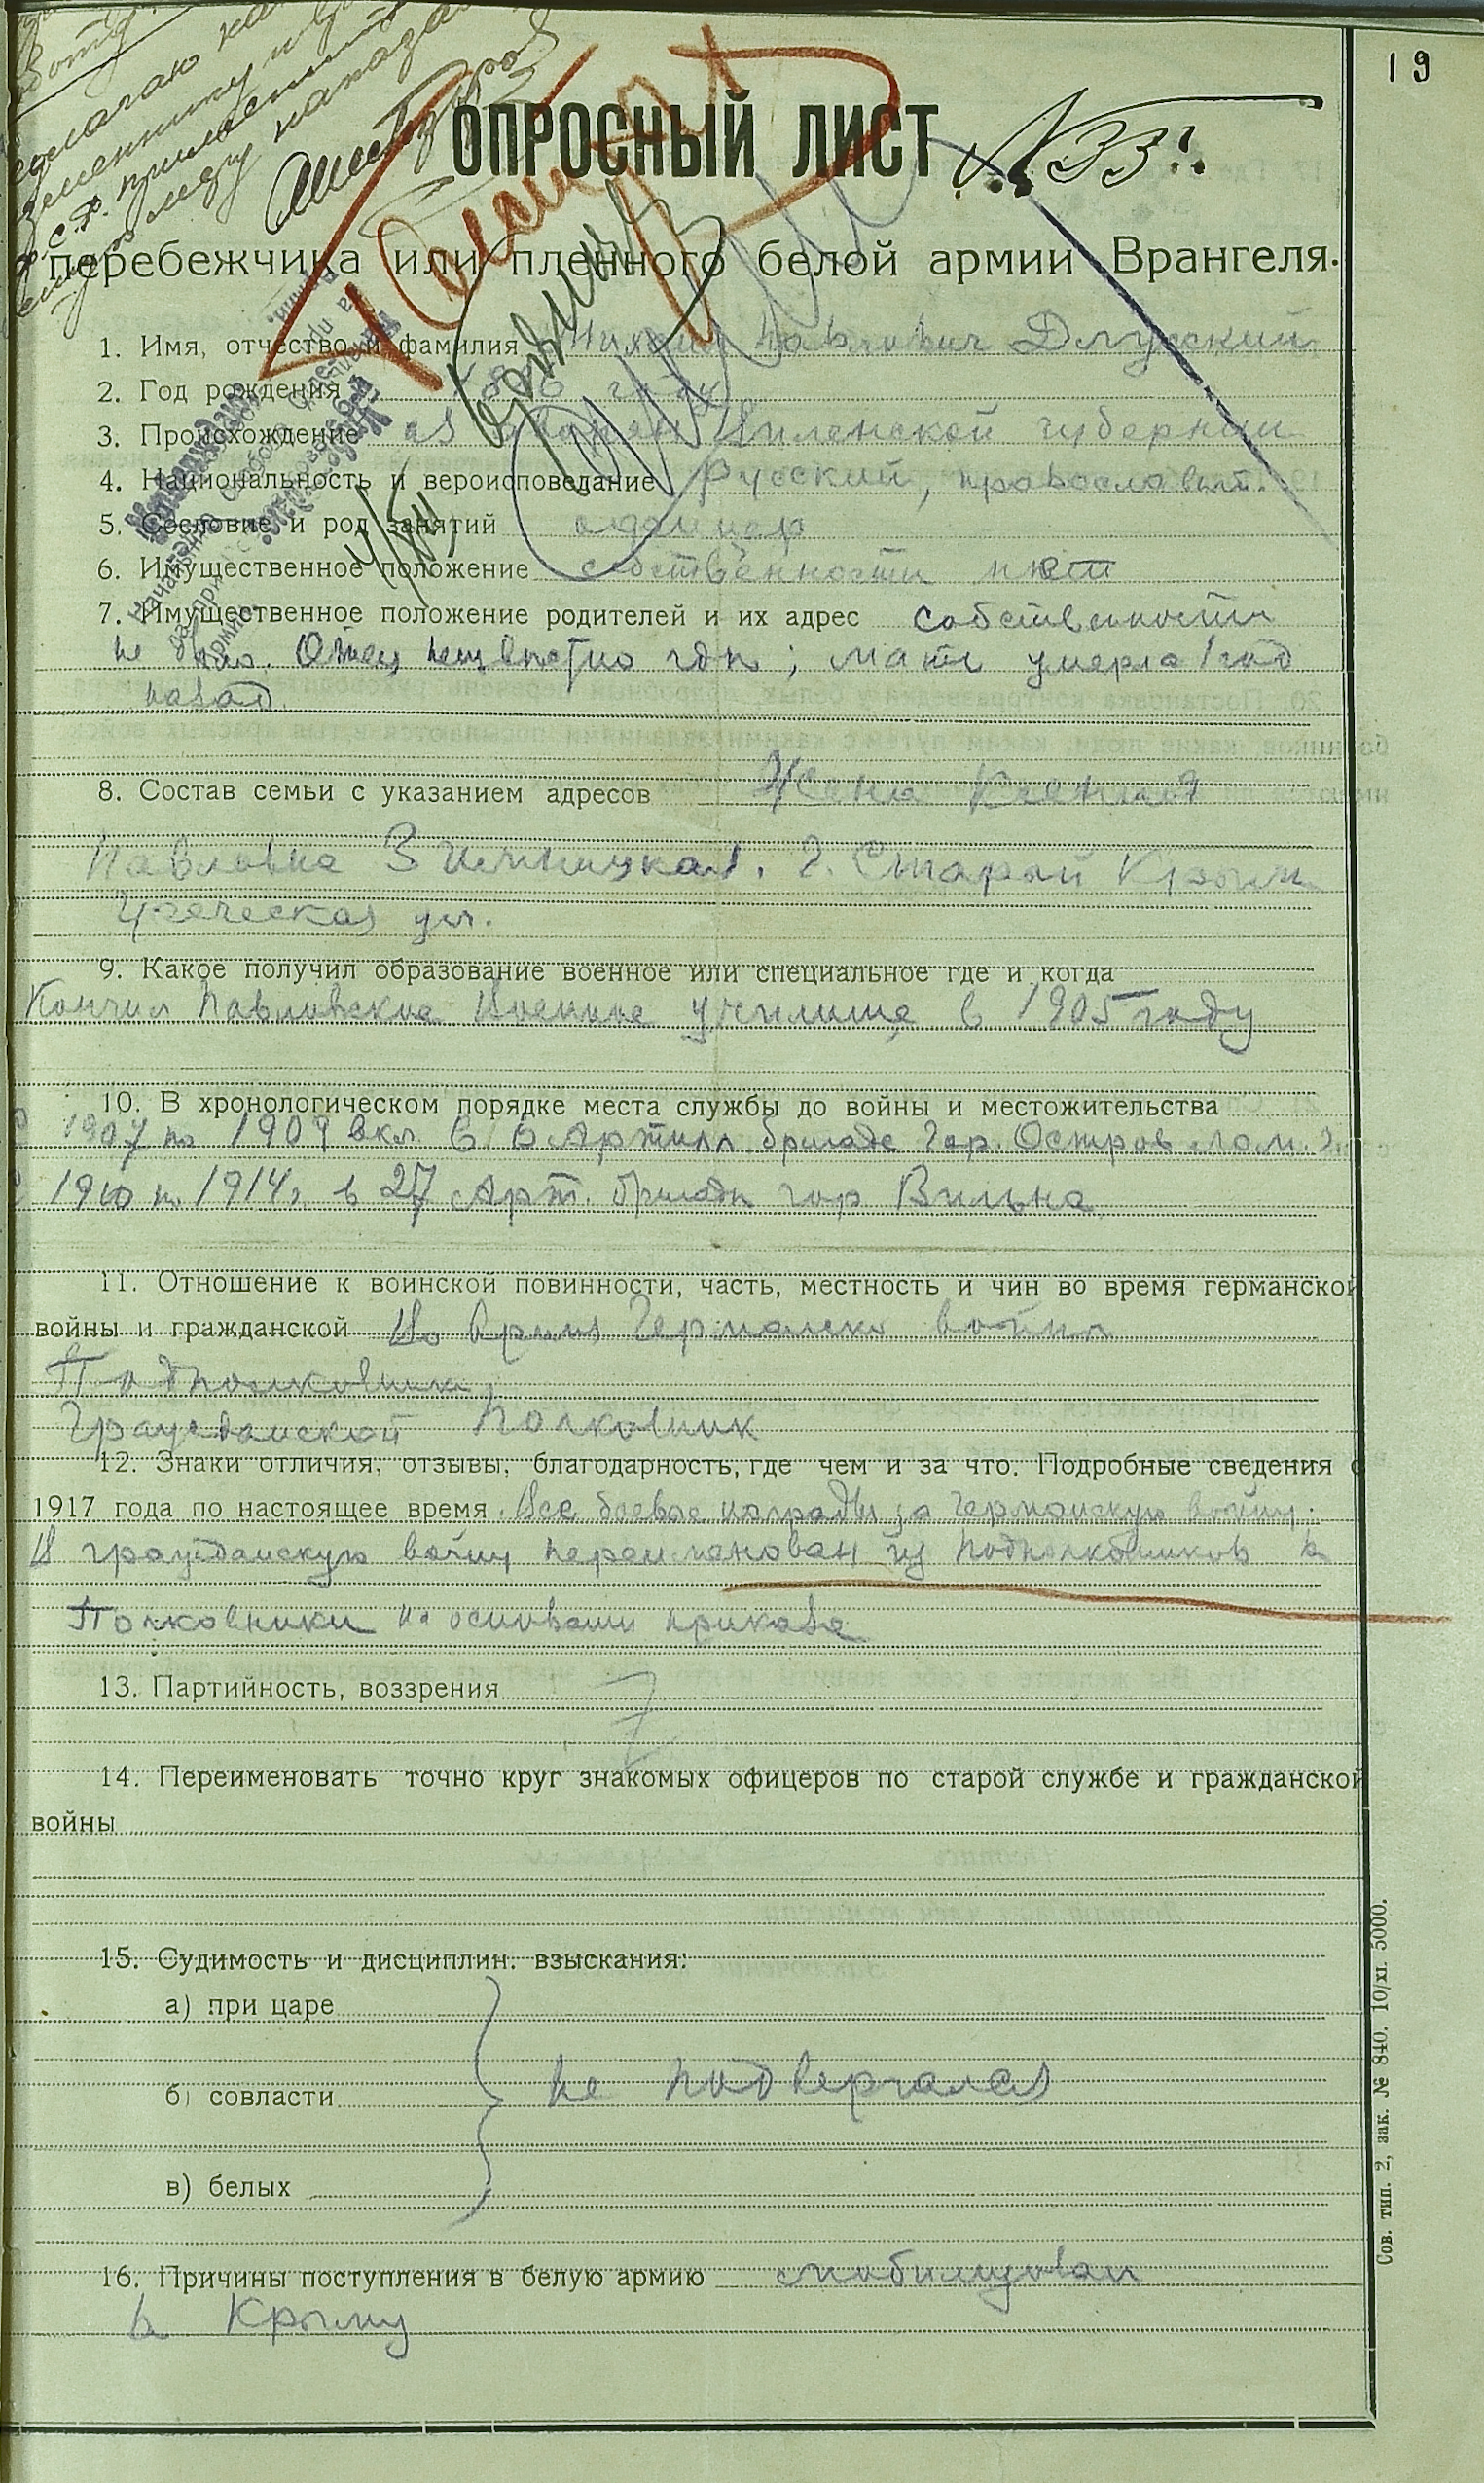 19
ОПРОСНЫЙ ЛИСТ № 33.
перебежчика или пленного белой армии Врангеля.
1. Имя, отчество и фамилия Михаил Павлович Длусский
2. Год рождения 1886 году
3. Происхождение из дворян Виленской губернии
4. Национальность и вероисповедание Русский, православный.
5. Сословие и род занятий офицер
6. Имущественное положение собственности нет
7. Имущественное положение родителей и их адрес собственности
не было. Отец неизвестно где; мать умерла 1 год
назад.
8. Состав семьи с указанием адресов Жена Ксения
Павловна г. Старый Крым
Греческая ул.
9. Какое получил образование военное или специальное где и когда
Кончил Павловское Военное училище в 1905 году
10. В хронологическом порядке места службы до войны и местожительства
1907 по 1909 вкл. в Артилл. бригаде гор. Остров Лом. г.
1910 по 1914 г. в 27 Арт. бригаде гор Вильна
11. Отношение к воинской повинности, часть, местность и чин во время германской
войны и гражданской Во время Германской войны
Подполковник,
Гражданской Полковник
12. Знаки отличия, отзывы, благодарность, где чем и за что. Подробные сведения с
1917 года по настоящее время. Все боевые награды за Германскую войну.
В гражданскую войну переименован из подполковников в
Полковники на основании приказа
13. Партийность, воззрения
14. Переименовать точно круг знакомых офицеров по старой службе и гражданской
войны
15. Судимость и дисциплин. взыскания:
а) при царе
б) совласти не подвергался
в) белых
16. Причины поступления в белую армию мобилизован
в Крыму
Сов. тип. 2, зак. № 840. 10/XI. 5000.